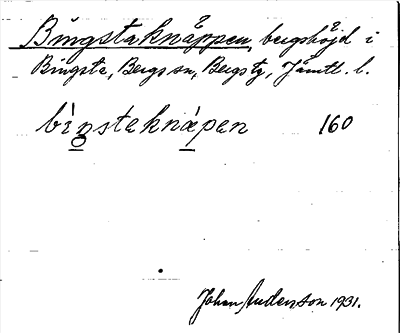 Bingstaknäppen, bergshöjd i
Bingsta, Bergs sn, Bergs tg, Jämtl. l.
bìŋstaknæ̀pan 160
Johan Anderson 1931.